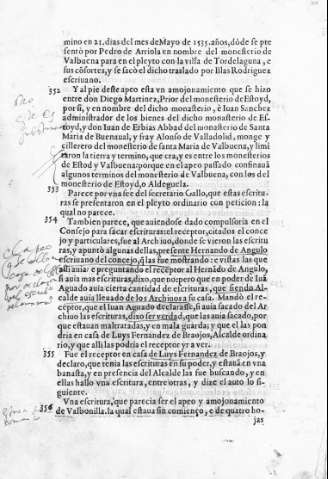 mino en 21. dias del mes de Mayo de 1535. años, dõde se pre
sentò por Pedro de Arriola en nombre del monesterio de
Valbuena para en el pleyto con la villa de Tordelaguna, e
sus cõsortes, y se sacò el dicho traslado por Blas Rodriguez
escriuano.
352 Y al pie deste apeo esta vn amojonamiento que se hizo
entre don Diego Martinez, Prior del monesterio de Estoyd,
por si, y en nombre del dicho monesterio, e Iuan Sanchez
administrador de los bienes del dicho monesterio de Es-
toyd, y don Iuan de Erbias Abbad del monesterio de Santa
Maria de Buenaual, y fray Alonso de Valladolid, monge y
cillerero del monesterio de santa Maria de Valbuena, y limi
taron la tierra y termino, que era, y es entre los monesterios
de Estod y Valbuena: porque en el apeo passado confinauã
algunos terminos del monesterio de Valbuena, con los del
monesterio de Estoyd, o Aldeguela.
353 Parece por vna fee del secretario Gallo, que estas escritu-
ras se presentaron en el pleyto ordinario con peticion: la
qual no parece.
354 Tambien parece, que auiendose dado compulsoria en el
Consejo para sacar escrituras: el receptor, citados el conce
jo y particulares, fue al Archiuo, donde se vieron las escritu
ras, y apuntò algunas dellas, presente Hernando de Angulo
escriuano del concejo, q̃ las fue mostrando: e vistas las que
alli auia: e preguntando el receptor al Hernãdo de Angulo,
si auia mas escrituras, dixo, que no: pero que en poder de Luis
Aguado auia cierta cantidad de escrituras, que siendo Al-
calde auia lleuado de los Archiuos a su casa. Mandò el re-
ceptor, que el Iuan Aguado declarasse, si auia sacado del Ar
chiuo las escrituras, dixo ser verdad, que las auia sacado, por
que estauan maltratadas, y en mala guarda: y que el las pon
dria en casa de Luys Fernandez de Braojos, Alcalde ordina
rio, y que alli las podria el receptor yr a ver.
355 Fue el receptor en casa de Luys Fernandez de Braojos, y
declarò, que tenia las escrituras en su poder, y estauã en vna
banasta, y en presencia del Alcalde las fue buscando, y en
ellas hallo vna escritura, entre otras, y dize el auto lo si-
guiente.
356 Vna escritura, que parecia ser el apeo y amojonamiento
de Valbonilla. la qual estaua sin comienço, e de quatro ho-
jas